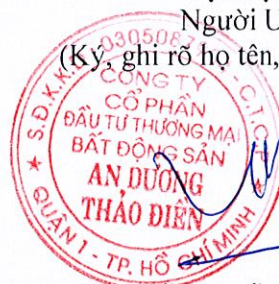 Người U
(Ký, ghi rõ họ tên,
S.Đ.K.K.D: 030508
C.T.C.P
CÔNG TY
CỔ PHẦN
ĐẦU TƯ THƯƠNG MẠI
BẤT ĐỘNG SẢN
AN DƯƠNG
THẢO ĐIỀN
QUẬN 1 - TP. HỒ CHÍ MINH